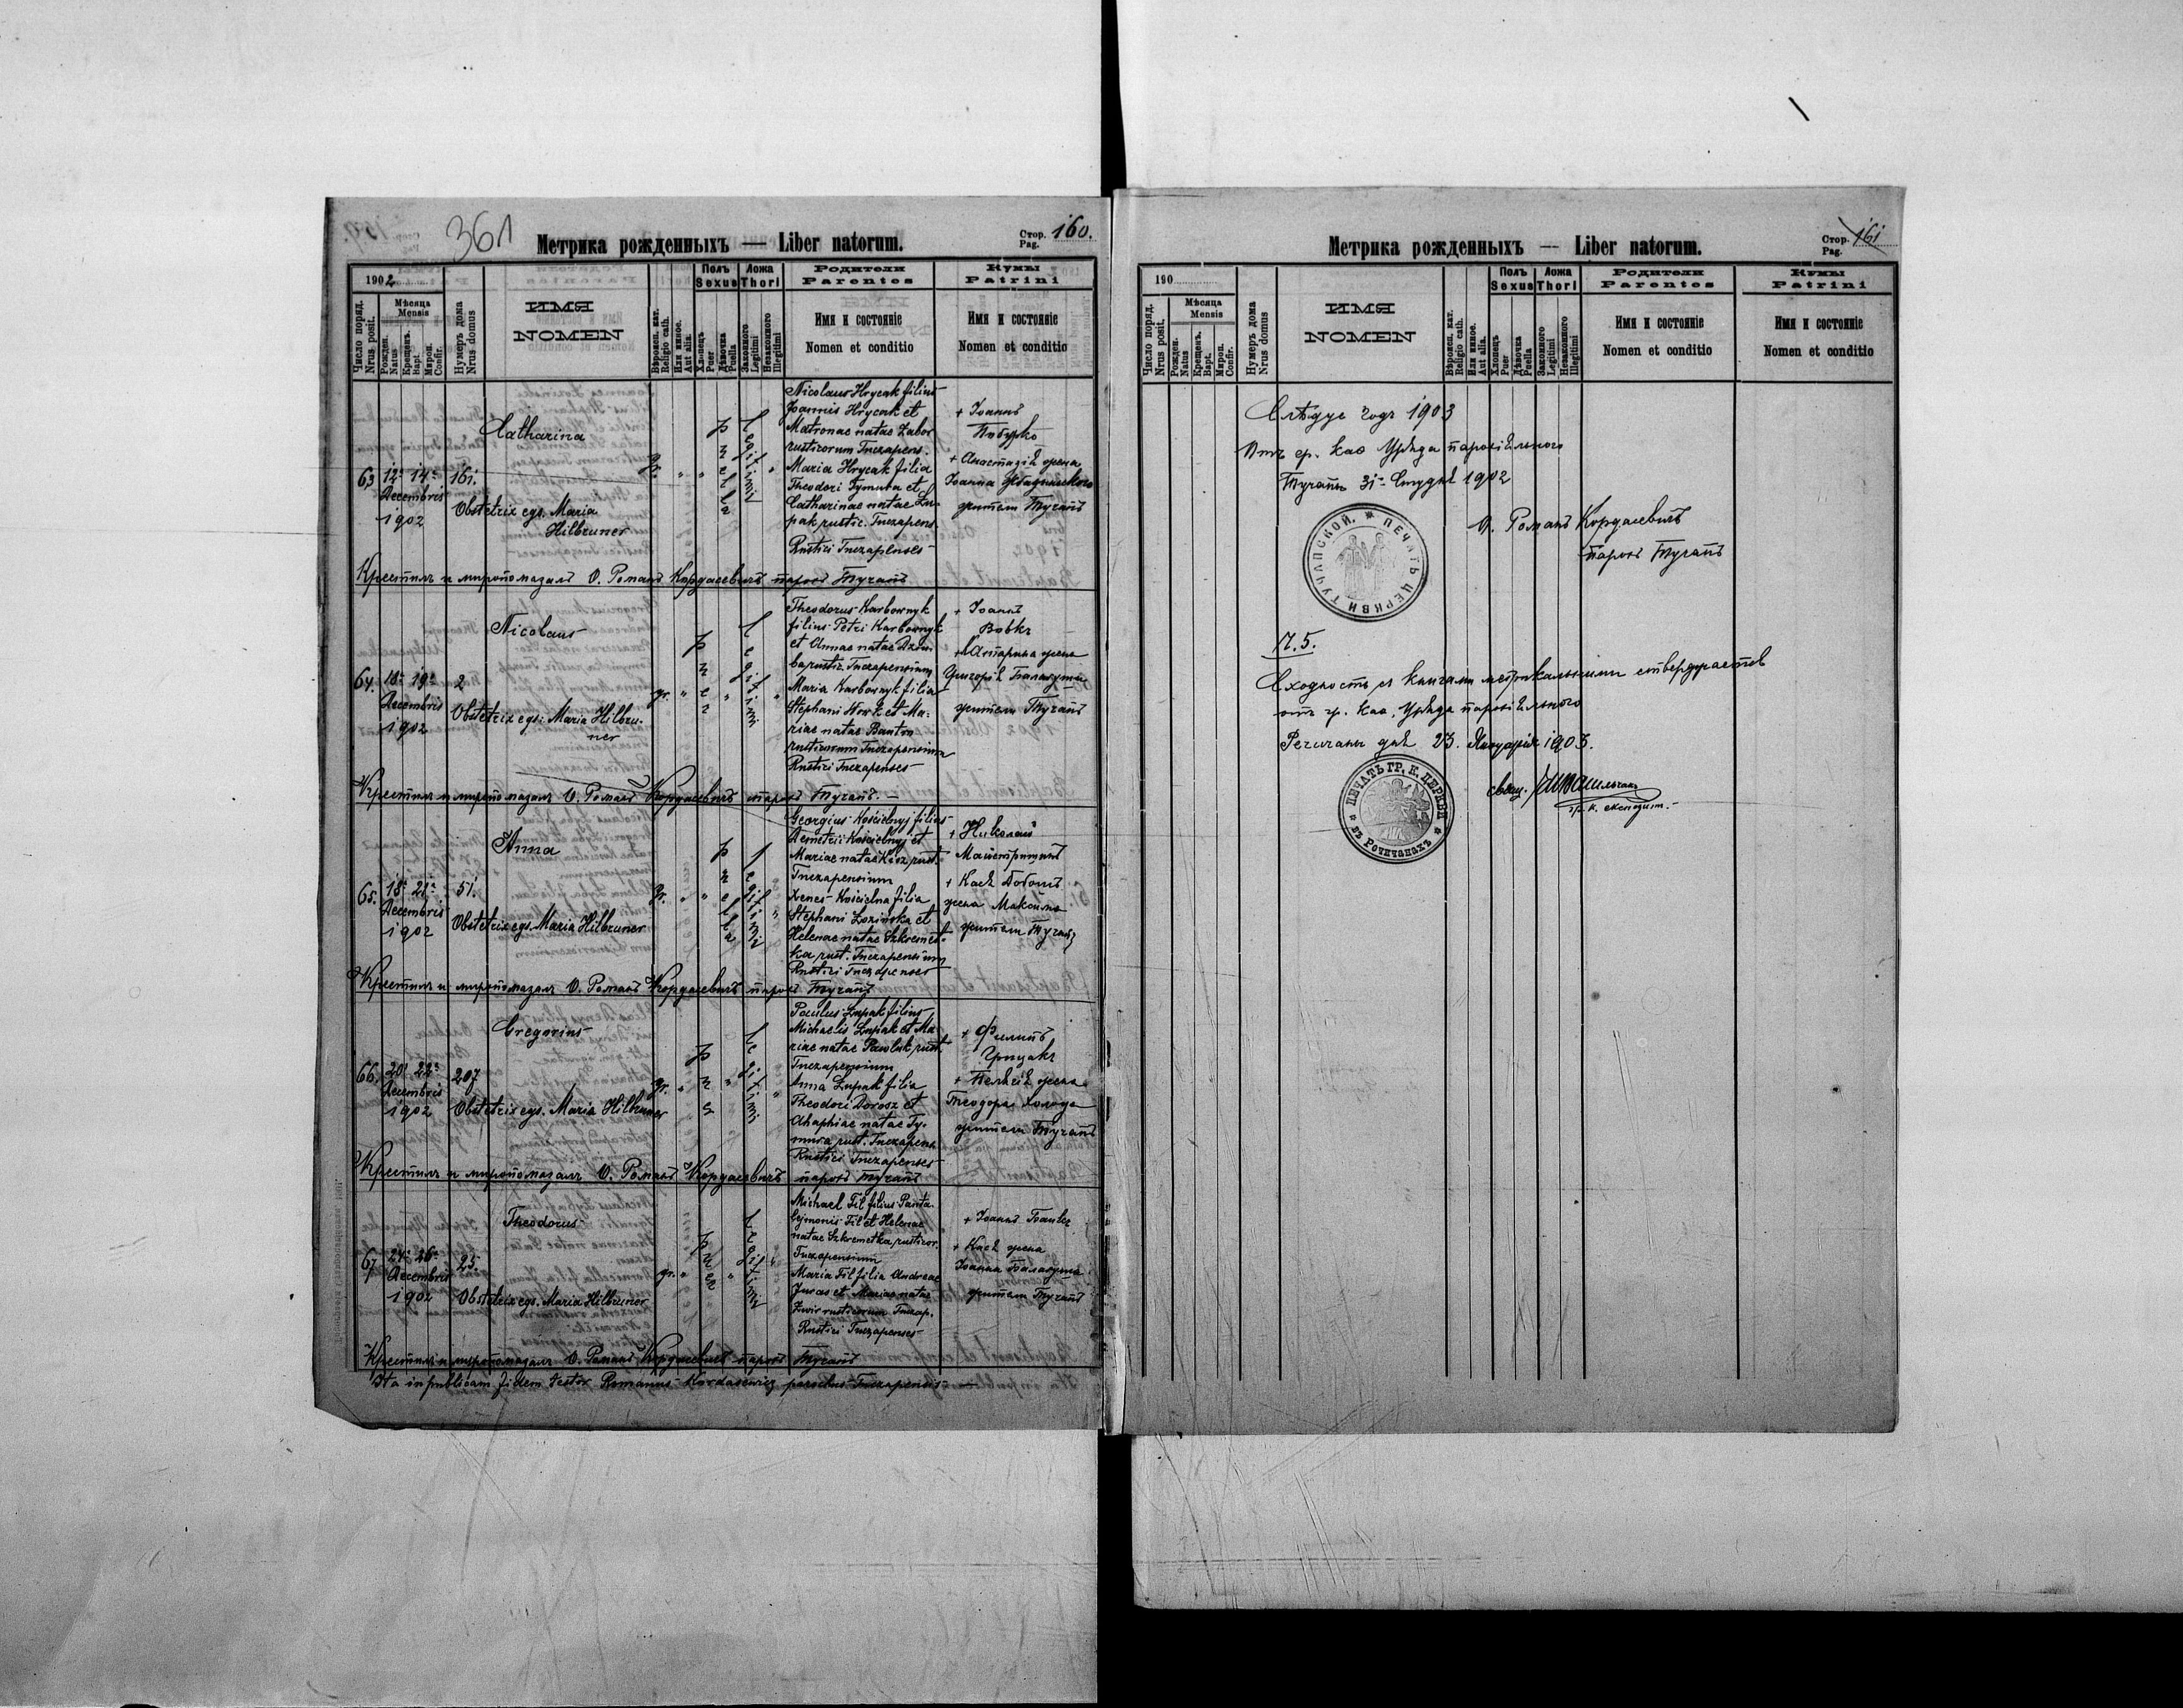 361
Метрика рожденныхъ — Liber natorum.
Стор. Pag. 160.
1902
Число поряд. Nrus posit.
Мѣсяца Mensis
Рожден. Natus
Крещенъ. Bapt.
Миров. Confir.
Нумеръ дома Nrus domus
ИМЯ
NOMEN
Вѣроисп. кат. Religio cath.
Или иное. Aut alia.
Полъ Sexus
Хлопецъ Puer
Дѣвочка Puella
Ложа Thori
Законного Legitimi
Незаконного Illegitimi
Родители Parentes
Имя и состояніе
Nomen et conditio
Кумы Patrini
Имя и состояніе
Nomen et conditio
63 12 14 Decembris 1902
161.
Catharina
Obstetrix egs. Maria
Hilbruner
gr.
puella
legitimi
Nicolaus Hrycak filius
Joannis Hrycak et
Matronae natae Zabor
rusticorum Tuczapens.
Maria Hrycak filia
Theodori Tymura et
Catharinae natae Lu-
pak rustic. Tuczapens.
Rustici Tuczapenses
+ Іоаннъ
+ Анастазія жена
Іоанна
жители Тучапъ
Крестилъ и миропомазалъ О. Романъ Кордасевичъ парохъ Тучапъ
64. 18 19 Decembris 1902
2
Nicolaus
Obstetrix egs: Maria Hilbru-
ner
gr.
puer
legitimi
Theodorus Karbownyk
filius Petri Karbownyk
et Annae natae Dziu-
ba rustic. Tuczapensium
Maria Karbownyk filia
Stephani Wowk et Ma-
riae natae Bauton
rusticorum Tuczapensium
Rustici Tuczapenses
+ Іоаннъ
Вовкъ
+ Катарина жена
Григорія
жители Тучапъ
Крестилъ и миропомазалъ О. Романъ Кордасевичъ парохъ Тучапъ. —
65. 18 21 Decembris 1902
51.
Anna
Obstetrix egs. Maria Hilbruner
gr.
puella
legitimi
Georgius Kościelnyj filius
Demetrii Kościelnyj et
Mariae natae Kisz rust.
Tuczapensium
Xenes Kościelna filia
Stephani Łozińska et
Helenae natae Szkremet-
ka rust. Tuczapensium
Rustici Tuczapenses
+ Николай
+ Кася
жена Максима
жители Тучапъ
Крестилъ и миропомазалъ О. Романъ Кордасевичъ парохъ Тучапъ
66. 20 22 Decembris 1902
207
Gregorius
Obstetrix egs. Maria Hilbruner
gr.
puer
legitimi
Paulus Łupak filius
Michaelis Łupak et Ma-
riae natae Pawluk rust.
Tuczapensium
Anna Łupak filia
Theodori Dorosz et
Ahaphiae natae Ty-
mura rust. Tuczapens.
Rustici Tuczapenses
+ Филипъ
Грицакъ
+ Пелагія жена
Теодора
жители Тучапъ
Крестилъ и миропомазалъ О. Романъ Кордасевичъ парохъ Тучапъ
67 24 26 Decembris 1902
25.
Theodorus
Obstetrix egs. Maria Hilbruner
gr.
puer
legitimi
Michael Fil filius Panta-
lejmonis Fil et Helenae
natae Szkremetka rusticor.
Tuczapensium
Maria Fil filia Andreae
Juras et Mariae natae
Zwir rusticorum Tuczap.
Rustici Tuczapenses
+ Іоаннъ
+ Кася жена
Іоанна
жители Тучапъ
Крестилъ и миропомазалъ О. Романъ Кордасевичъ парохъ Тучапъ
Ita in publicam fidem testor Romanus Kordasewicz parochus Tuczapensis —
Метрика рожденныхъ — Liber natorum.
Стор. Pag. 161
190
Число поряд. Nrus posit.
Мѣсяца Mensis
Рожден. Natus
Крещенъ. Bapt.
Миров. Confir.
Нумеръ дома Nrus domus
ИМЯ
NOMEN
Вѣроисп. кат. Religio cath.
Или иное. Aut alia.
Полъ Sexus
Хлопецъ Puer
Дѣвочка Puella
Ложа Thori
Законного Legitimi
Незаконного Illegitimi
Родители Parentes
Имя и состояніе
Nomen et conditio
Кумы Patrini
Имя и состояніе
Nomen et conditio
Слѣдує годъ 1903
Отъ гр. каѳ Уряда парохіяльного
Тучапы 31 Студня 1902
О. Романъ Кордасевичъ
парохъ Тучапъ
ПЕЧАТЬ ЦЕРКВИ ТУЧАПСКОЙ.
Ч. 5.
Сходность съ книгами метрикальными ствердждаєтся
отъ гр. каѳ. Уряда парохіяльного
Речичаны дня 23. Януарія 1903.
свящ.
гр. к. експозит. —
ПЕЧАТЬ ГР. К. ЦЕРКВИ въ РОЧИЧАНАХЪ